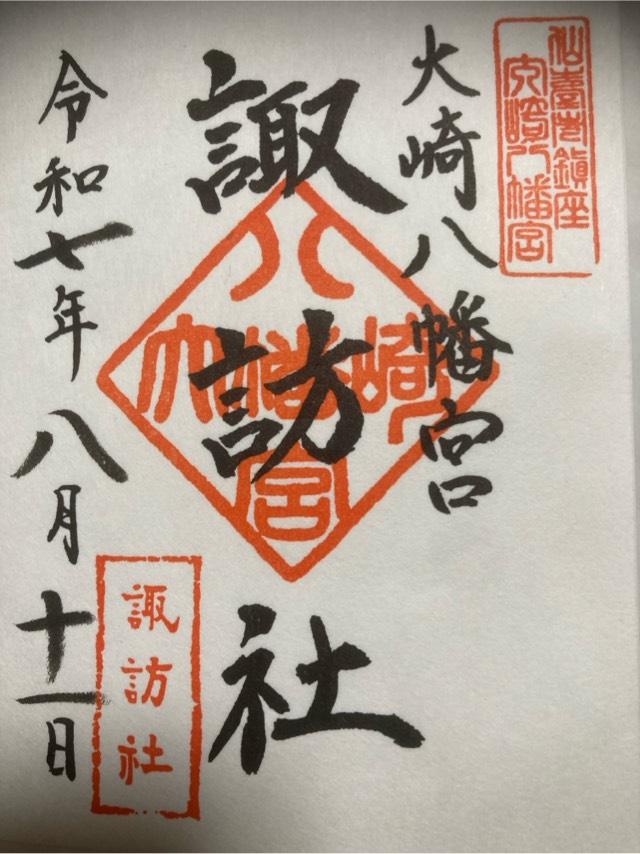 仙臺市鎮座
大崎八幡宮
大崎八幡宮
諏訪社
大崎八幡宮
諏訪社
令和七年八月十一日